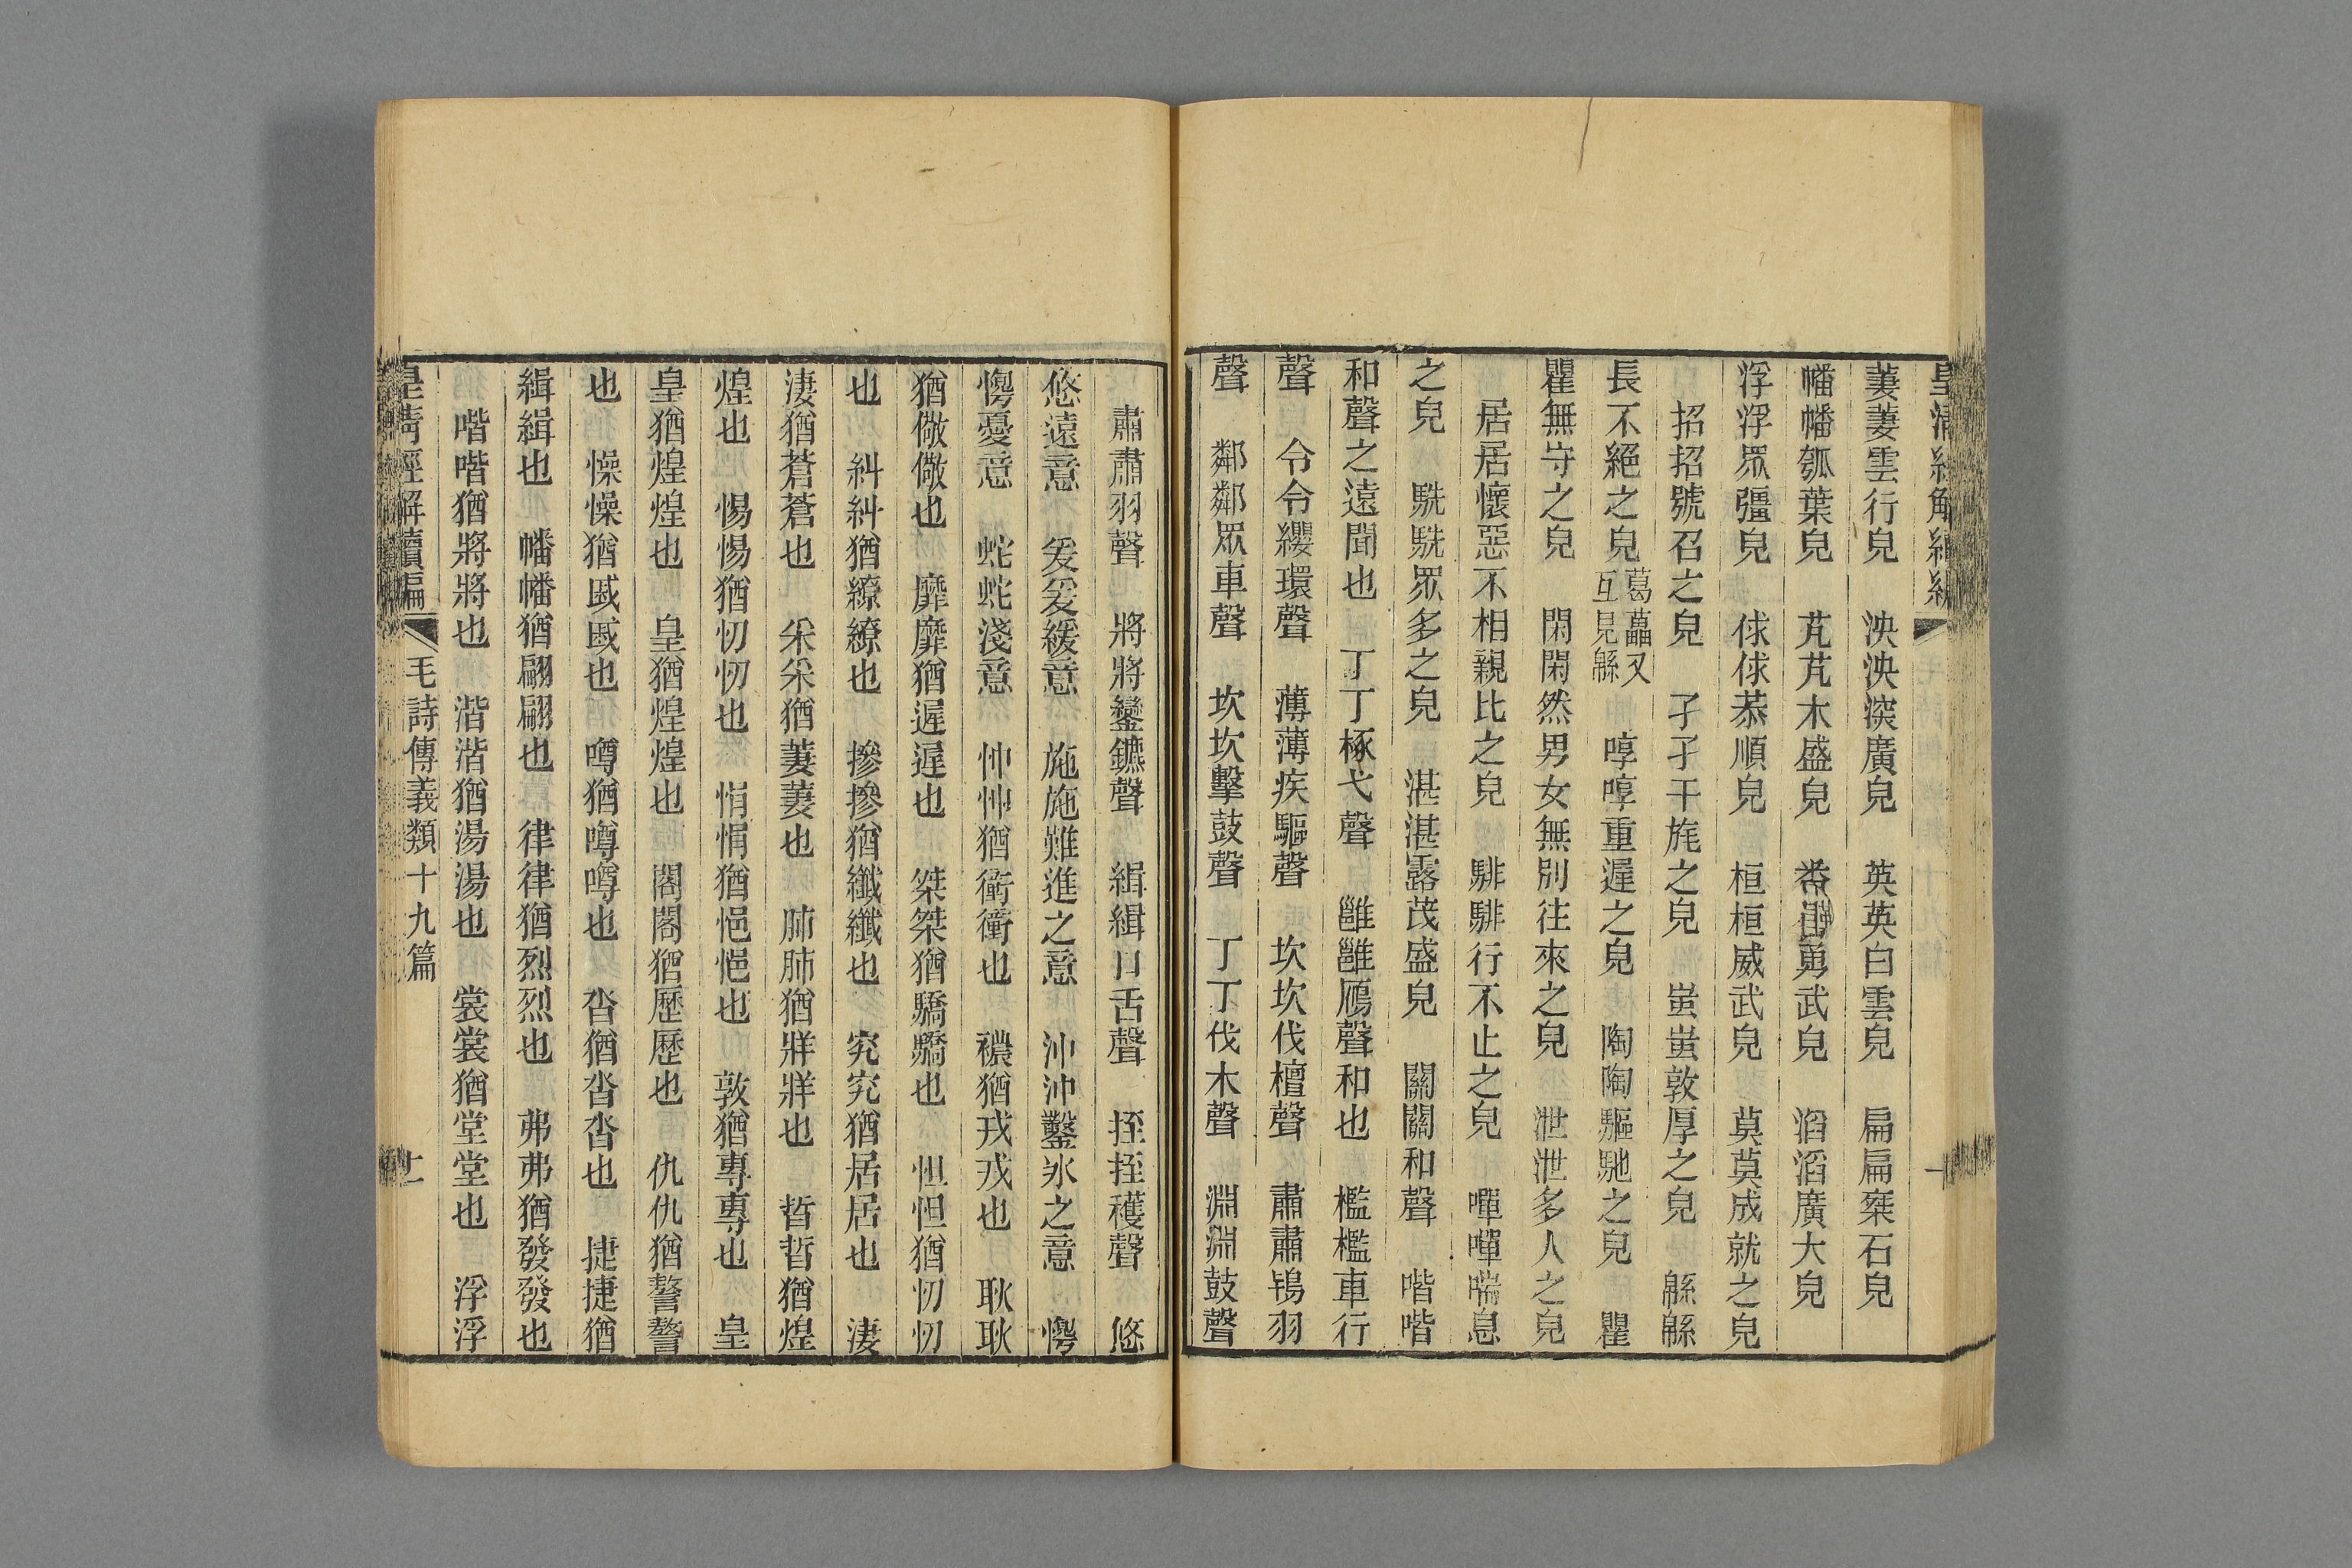 萋萋雲行皃　泱泱深廣皃　英英白雲皃　扁扁椉石皃
幡幡瓠葉皃　芃芃木盛皃　番番勇武皃　滔滔廣大皃
浮浮眾彊皃　俅俅恭順皃　桓桓威武皃　莫莫成就之皃
招招號召之皃　孑孑干旄之皃　蚩蚩敦厚之皃　緜緜
長不絕之皃葛藟又互見緜　啍啍重遲之皃　陶陶驅馳之皃　瞿
瞿無守之皃　閑閑然男女無別往來之皃　泄泄多人之皃
居居懷惡不相親比之皃　騑騑行不止之皃　嘽嘽喘息
之皃　駪駪眾多之皃　湛湛露茂盛皃　關關和聲　喈喈
和聲之遠聞也　丁丁椓弋聲　雝雝鴈聲和也　檻檻車行
聲　令令纓環聲　薄薄疾驅聲　坎坎伐檀聲　肅肅鴇羽
聲　鄰鄰眾車聲　坎坎擊鼓聲　丁丁伐木聲　淵淵鼓聲
肅肅羽聲　將將鑾鑣聲　緝緝口舌聲　挃挃穫聲　悠
悠遠意　爰爰緩意　施施難進之意　沖沖鑿冰之意　慯
慯憂意　蛇蛇淺意　忡忡猶衝衝也　襛猶戎戎也　耿耿
猶儆儆也　靡靡猶遲遲也　桀桀猶驕驕也　怛怛猶忉忉
也　糾糾猶繚繚也　摻摻猶纖纖也　究究猶居居也　淒
淒猶蒼蒼也　采采猶萋萋也　肺肺猶牂牂也　晢晢猶煌
煌也　惕惕猶忉忉也　悁悁猶悒悒也　敦猶專專也　皇
皇猶煌煌也　皇猶煌煌也　閣閣猶歷歷也　仇仇猶謷謷
也　懆懆猶戚戚也　噂猶噂噂也　沓猶沓沓也　捷捷猶
緝緝也　幡幡猶翩翩也　律律猶烈烈也　弗弗猶發發也
喈喈猶將將也　湝湝猶湯湯也　裳裳猶堂堂也　浮浮
皇清經解續編　毛詩傳義類十九篇